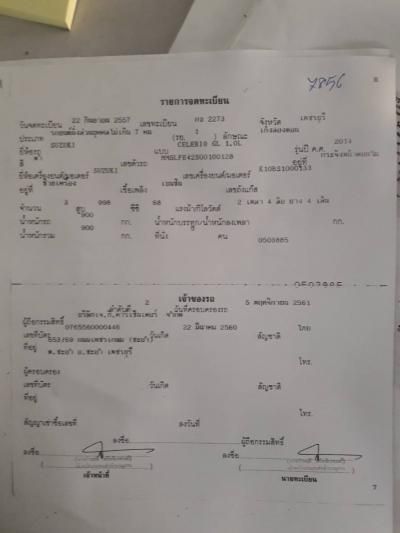 7856
8
รายการจดทะเบียน
วันจดทะเบียน 22 กันยายน 2557 เลขทะเบียน กจ 2273 จังหวัด เพชรบุรี
ประเภท รถยนต์นั่งส่วนบุคคลไม่เกิน 7 คน (รย. 1 ) ลักษณะ เก๋งสองตอน
ยี่ห้อรถ SUZUKI แบบ CELERIO GL 1.0L รุ่นปี ค.ศ. 2014
สี เทา เลขตัวรถ MMSLFE42S00100128 อยู่ที่
ยี่ห้อเครื่องยนต์/มอเตอร์ SUZUKI เลขเครื่องยนต์/มอเตอร์ K10BS1000133
อยู่ที่ เชื้อเพลิง เบนซิน เลขถังแก๊ส
จำนวน 3 สูบ 998 ซีซี 68 แรงม้า/กิโลวัตต์ 2 เพลา 4 ล้อ ยาง 4 เส้น
น้ำหนักรถ 900 กก. น้ำหนักบรรทุก/น้ำหนักลงเพลา กก.
น้ำหนักรวม 900 กก. ที่นั่ง คน 0503885
เจ้าของรถ
ลำดับที่ 2 วันที่ครอบครองรถ 5 พฤศจิกายน 2561
ผู้ถือกรรมสิทธิ์
เลขที่บัตร 0765560000446 วันเกิด 22 มีนาคม 2560 สัญชาติ ไทย
ที่อยู่ 853/69 ถนนเพชรเกษม (ชะอำ)
ต.ชะอำ อ.ชะอำ เพชรบุรี
โทร.
ผู้ครอบครอง
เลขที่บัตร วันเกิด สัญชาติ
ที่อยู่
โทร.
สัญญาเช่าซื้อเลขที่ ลงวันที่
ลงชื่อ ผู้ถือกรรมสิทธิ์
ลงชื่อ ลงชื่อ
เจ้าหน้าที่ นายทะเบียน
7